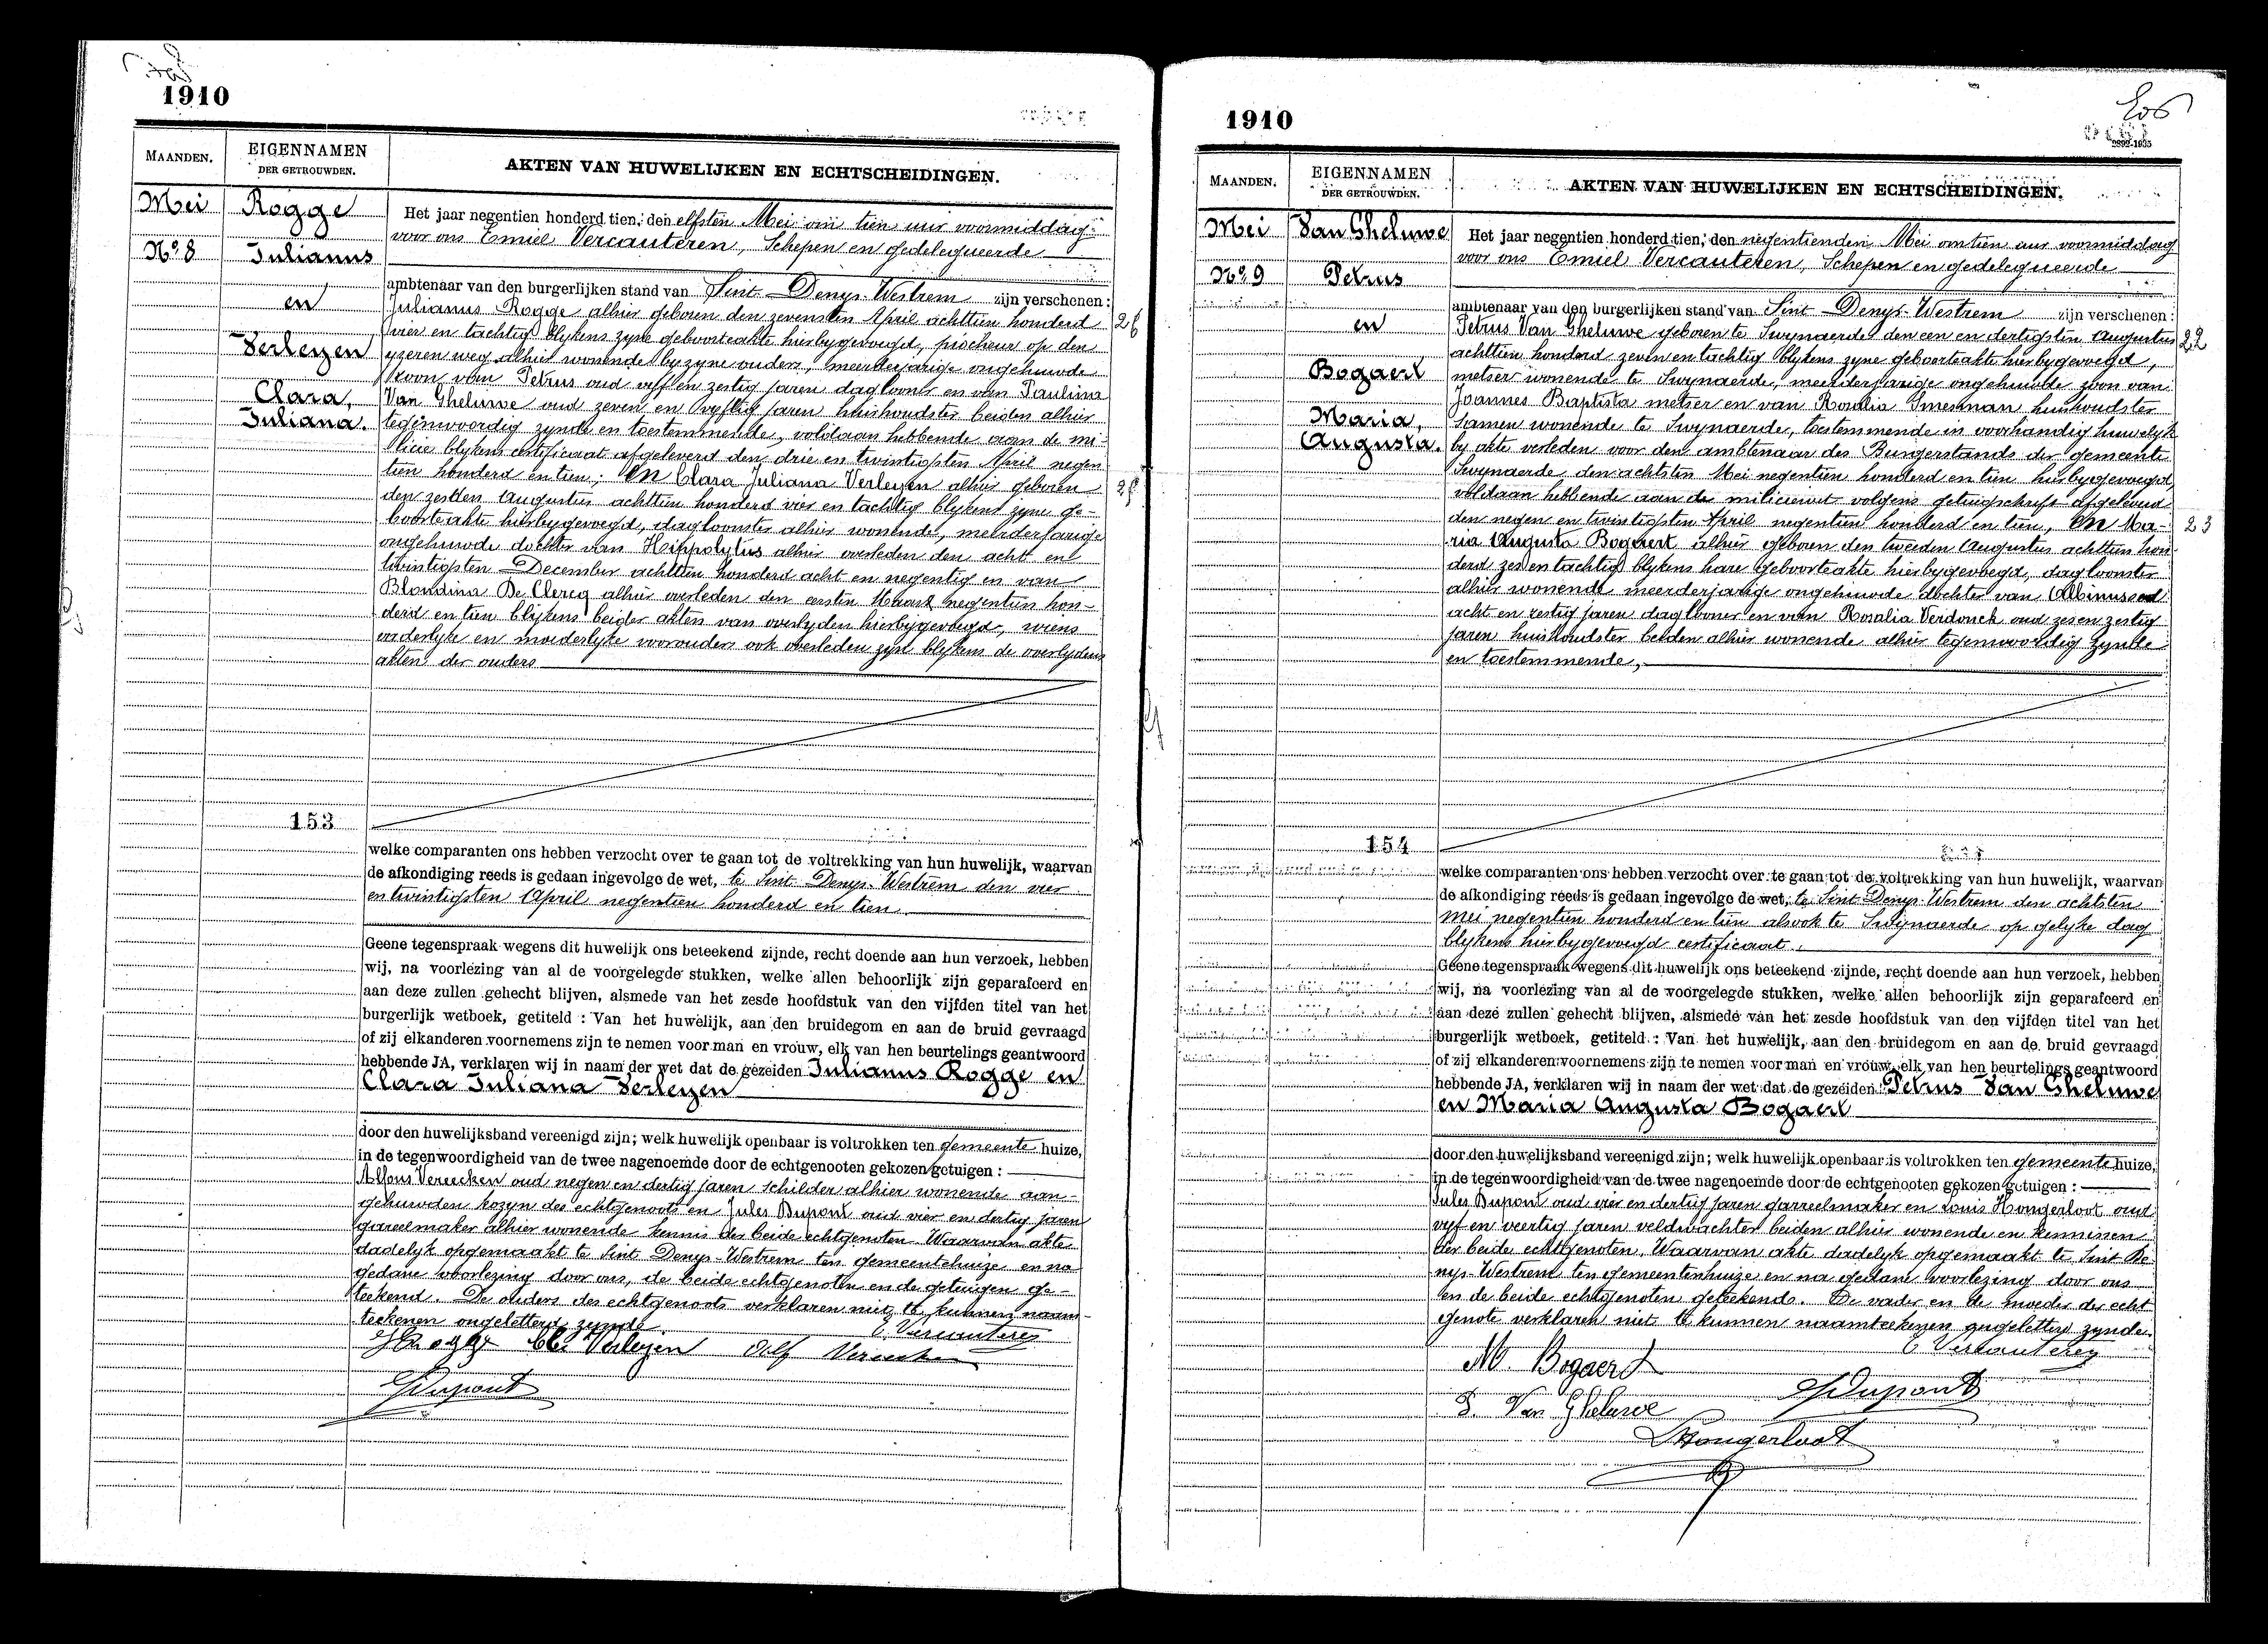 1910
MAANDEN.
EIGENNAMEN
DER GETROUWDEN.
AKTEN VAN HUWELIJKEN EN ECHTSCHEIDINGEN.
Mei
No. 8
Rogge
Julianus
en
Verleyen
Clara,
Juliana.
153
Het jaar negentien honderd tien, den elfsten Mei om tien uur voormiddag
voor ons Emiel Vercauteren, Schepen en gedelegueerde
ambtenaar van den burgerlijken stand van Sint-Denys-Westrem zijn verschenen:
Julianus Rogge alhier geboren den zevensten April achttien honderd
vier en tachtig blykens zyne geboorteakte hierbygevoegd, piocheur op den
yzeren weg alhier wonende by zyne ouders, meerderjarige ongehuwde
zoon van Petrus oud vyf en zestig jaren daglooner en van Paulina
Van Gheluwe oud zeven en vyftig jaren huishoudster beiden alhier
tegenwoordig zynde en toestemmende, voldaan hebbende aan de mi-
licie blykens certificaat afgeleverd den drie en twintigsten April negen
tien honderd en tien; en Clara Juliana Verleyen alhier geboren
den zesden Augustus achttien honderd vier en tachtig blykens zyne ge-
boorteakte hierbygevoegd, dagloonster alhier wonende, meerderjarige
ongehuwde dochter van Hippolytus alhier overleden den acht en
twintigsten December achttien honderd acht en negentig en van
Blondina De Clercq alhier overleden den eersten Maart negentien hon-
derd en tien blykens beider akten van overlyden hierbygevoegd, wiens
vaderlyke en moederlyke voorouders ook overleden zyn blykens de overlydens
akten der ouders
welke comparanten ons hebben verzocht over te gaan tot de voltrekking van hun huwelijk, waarvan
de afkondiging reeds is gedaan ingevolge de wet, te Sint-Denys-Westrem den vier
en twintigsten April negentien honderd en tien
Geene tegenspraak wegens dit huwelijk ons beteekend zijnde, recht doende aan hun verzoek, hebben
wij, na voorlezing van al de voorgelegde stukken, welke allen behoorlijk zijn geparafeerd en
aan deze zullen gehecht blijven, alsmede van het zesde hoofdstuk van den vijfden titel van het
burgerlijk wetboek, getiteld : Van het huwelijk, aan den bruidegom en aan de bruid gevraagd
of zij elkanderen voornemens zijn te nemen voor man en vrouw, elk van hen beurtelings geantwoord
hebbende JA, verklaren wij in naam der wet dat de gezeiden Julianus Rogge en
Clara Juliana Verleyen
door den huwelijksband vereenigd zijn; welk huwelijk openbaar is voltrokken ten gemeente huize,
in de tegenwoordigheid van de twee nagenoemde door de echtgenooten gekozen getuigen :
Alfons Vereecken oud negen en dertig jaren schilder alhier wonende aan-
gehuwden kozyn des echtgenoots en Jules Dupont oud vier en dertig jaren
gareelmaker alhier wonende kennis der beide echtgenoten. Waarvan akte
dadelyk opgemaakt te Sint Denys-Westrem ten gemeentehuize en na
gedane voorlezing door ons, de beide echtgenoten en de getuigen ge-
teekend. De ouders des echtgenoots verklaren niet te kunnen naam-
teekenen ongeletterd zynde.
E. Vercauteren
J Rogge Cla Verleyen Alf Vereecken
J Dupont
1910
2892-1935
MAANDEN.
EIGENNAMEN
DER GETROUWDEN.
AKTEN VAN HUWELIJKEN EN ECHTSCHEIDINGEN.
Mei
No. 9
Van Gheluwe
Petrus
en
Bogaert
Maria,
Augusta.
154
Het jaar negentien honderd tien, den negentienden Mei om tien uur voormiddag
voor ons Emiel Vercauteren, Schepen en gedelegueerde
ambtenaar van den burgerlijken stand van Sint-Denys-Westrem zijn verschenen :
Petrus Van Gheluwe geboren te Swynaerde den een en dertigsten Augustus
achttien honderd zeven en tachtig blykens zyne geboorteakte hierbygevoegd,
metser wonende te Swynaerde, meerderjarige ongehuwde zoon van
Joannes Baptista metser en van Rosalia Smesman huishoudster
samen wonende te Swynaerde, toestemmende in voorhandig huwelyk
by akte verleden voor den ambtenaar des Burgerstands der gemeente
Swynaerde den achtsten Mei negentien honderd en tien hierbygevoegd,
voldaan hebbende aan de miliciewet volgens getuigschrift afgeleverd
den negen en twintigsten April negentien honderd en tien, en Ma-
ria Augusta Bogaert alhier geboren den tweeden Augustus achttien hon-
derd zes en tachtig blykens hare geboorteakte hierbygevoegd, dagloonster
alhier wonende meerderjarige ongehuwde dochter van Albinus oud
acht en zestig jaren dagloner en van Rosalia Verdonck oud zes en zestig
jaren huishoudster beiden alhier wonende alhier tegenwoordig zynde
en toestemmende,
welke comparanten ons hebben verzocht over te gaan tot de voltrekking van hun huwelijk, waarvan
de afkondiging reeds is gedaan ingevolge de wet, te Sint-Denys-Westrem den achtsten
Mei negentien honderd en tien alsook te Swynaerde op gelyke dag
blykens hierbygevoegd certificaat.
Geene tegenspraak wegens dit huwelijk ons beteekend zijnde, recht doende aan hun verzoek, hebben
wij, na voorlezing van al de voorgelegde stukken, welke allen behoorlijk zijn geparafeerd en
aan deze zullen gehecht blijven, alsmede van het zesde hoofdstuk van den vijfden titel van het
burgerlijk wetboek, getiteld : Van het huwelijk, aan den bruidegom en aan de bruid gevraagd
of zij elkanderen voornemens zijn te nemen voor man en vrouw, elk van hen beurtelings geantwoord
hebbende JA, verklaren wij in naam der wet dat de gezeiden Petrus Van Gheluwe
en Maria Augusta Bogaert
door den huwelijksband vereenigd zijn; welk huwelijk openbaar is voltrokken ten gemeente huize,
in de tegenwoordigheid van de twee nagenoemde door de echtgenooten gekozen getuigen :
Jules Dupont oud vier en dertig jaren garreelmaker en Louis Hongerloot oud
vyf en veertig jaren veldwachter beiden alhier wonende en kennissen
der beide echtgenoten. Waarvan akte dadelyk opgemaakt te Sint De-
nys-Westrem ten gemeentenhuize en na gedane voorlezing door ons
en de beide echtgenoten geteekend. De vader en de moeder der echt
genote verklaren niet te kunnen naamteekenen ongeletterd zynde.
E Vercauteren
M. Bogaert
J Dupont
P. Van Gheluwe
L Hongerloot